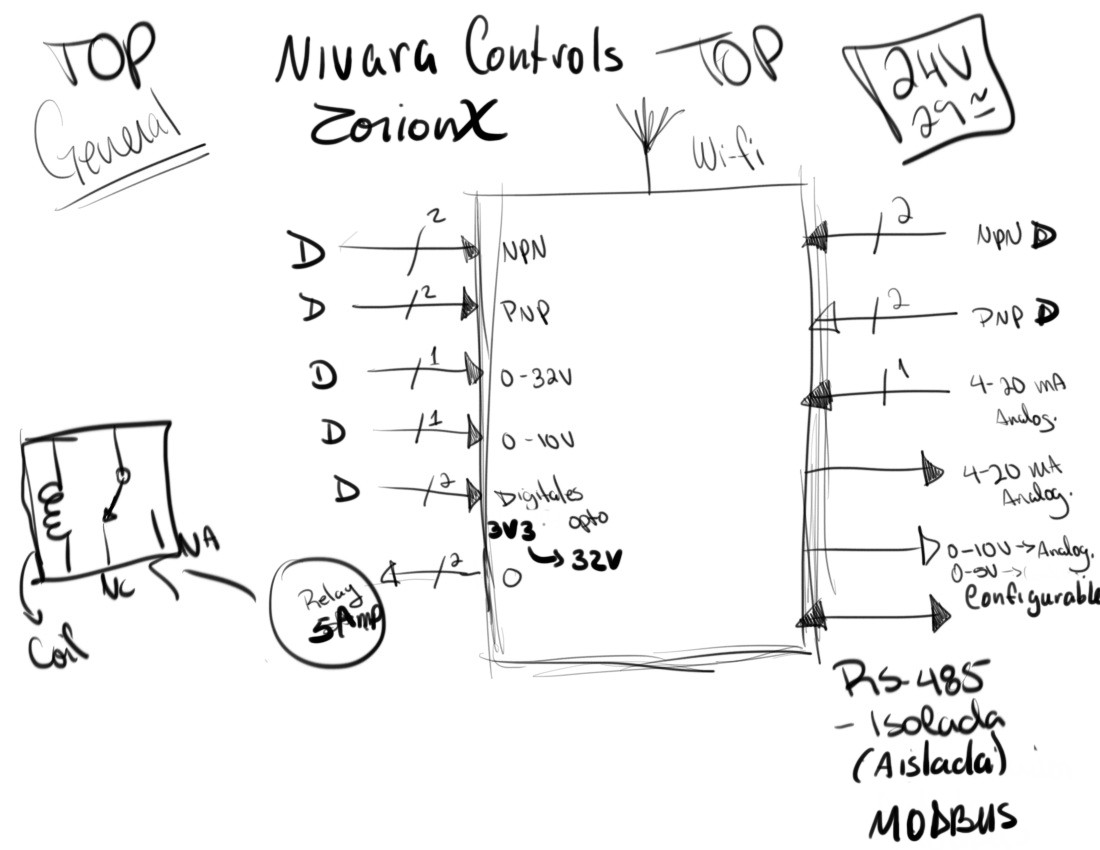 TOP
General
Nivara Controls
ZorionX
TOP
24V
Wi-fi
D 2 NPN
D 2 PNP
D 1 0-32V
D 1 0-10V
D 2 Digitales
opto
3V3
32V
2
Relay
5Amp
NA
NC
Coil
2 NPN D
2 PNP D
1 4-20 mA
Analog.
4-20 mA
Analog.
0-10V → Analog.
0-5V →
Configurable
RS-485
- Isolada
(Aislada)
MODBUS